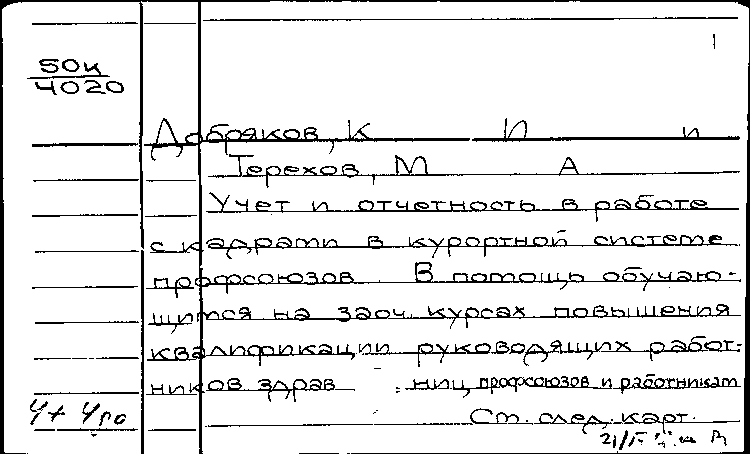 1
50к
4020
Добряков, К И и
Терехов, М А
Учет и отчетность в работе
с кадрами в курортной системе
профсоюзов В помощь обучаю-
щимся на заоч. курсах повышения
квалификации руководящих работ-
ников здрав ниц профсоюзов и работникам
См. след. карт.